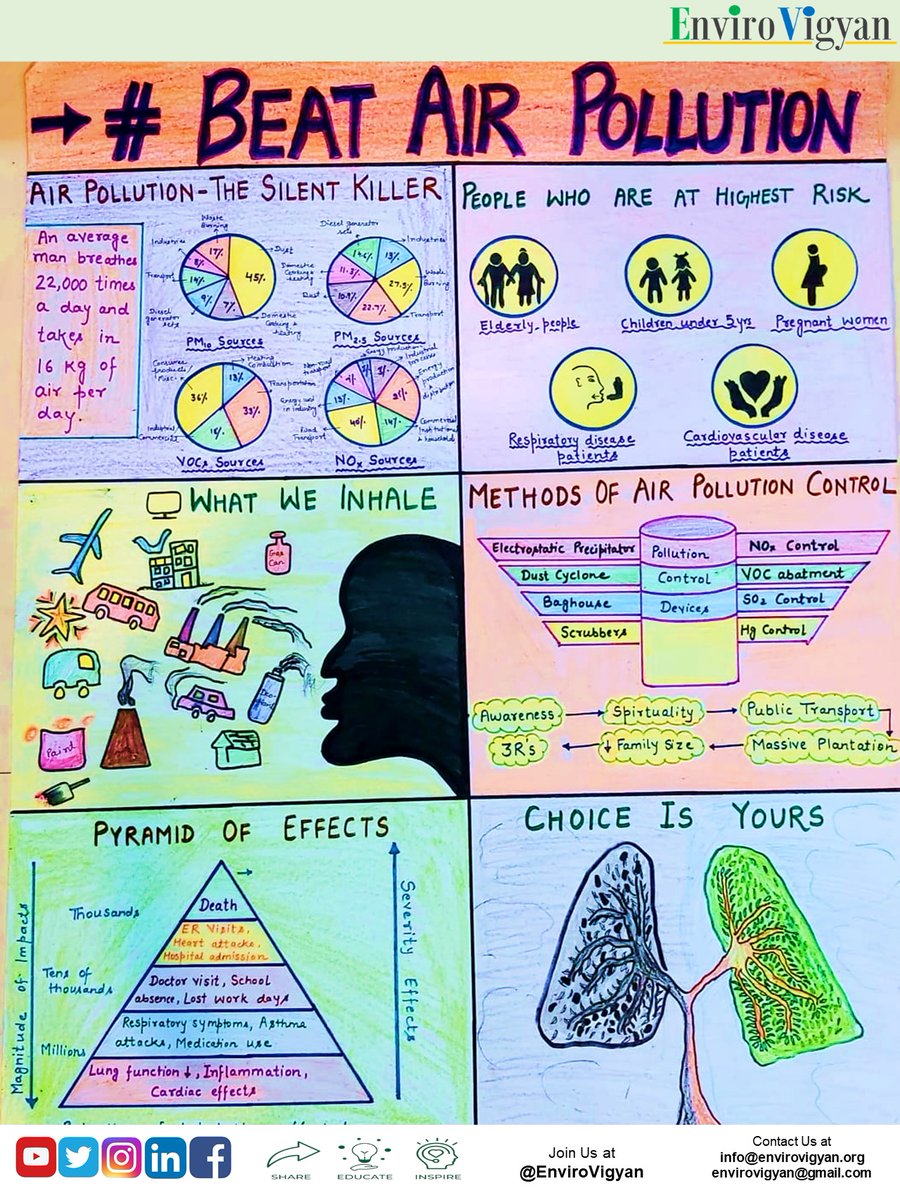 EnviroVigyan
→ # BEAT AIR POLLUTION
AIR POLLUTION-THE SILENT KILLER
An average
man breathes
22,000 times
a day and
takes in
16 kg of
air per
day.
Waste
Burning
Industries
Transport
Diesel generator
sets
Dust
Domestic
Cooking &
heating
17%
8%
14%
9%
7%
45%
PM10 Sources
Diesel generator
sets
Industries
Waste
Burning
Transport
Dust
Domestic
Cooking &
heating
13%
27.5%
22.7%
11.3%
PM2.5 Sources
Consumer
products/
Misc.
Heating
Combustion
Transportation
Energy used
in industry
Industrial/
Commercial
36%
13%
VOCs Sources
Energy production
Industrial
processes
Energy
production &
distribution
Commercial
Institutional
& households
Road
Transport
Non road
transport
21%
14%
40%
13%
NOx Sources
PEOPLE WHO ARE AT HIGHEST RISK
Elderly people
Children under 5yrs
Pregnant women
Respiratory disease
patients
Cardiovascular disease
patients
WHAT WE INHALE
Gas
Can
Paint
METHODS OF AIR POLLUTION CONTROL
Electrostatic Precipitator
Pollution
NOx Control
Dust Cyclone
Control
VOC abatment
Baghouse
Devices
SO2 Control
Scrubbers
Hg Control
Awareness → Spirtuality → Public Transport
3R's ← ↓ Family Size ← Massive Plantation
PYRAMID OF EFFECTS
Magnitude of Impacts
Thousands
Tens of
thousands
Millions
Death
ER Visits,
Heart attacks,
Hospital admission
Doctor visit, School
absence, Lost work days
Respiratory symptoms, Asthma
attacks, Medication use
Lung function ↓, Inflammation,
Cardiac effects
Severity Effects
CHOICE IS YOURS
SHARE
EDUCATE
INSPIRE
Join Us at
@EnviroVigyan
Contact Us at
info@envirovigyan.org
envirovigyan@gmail.com